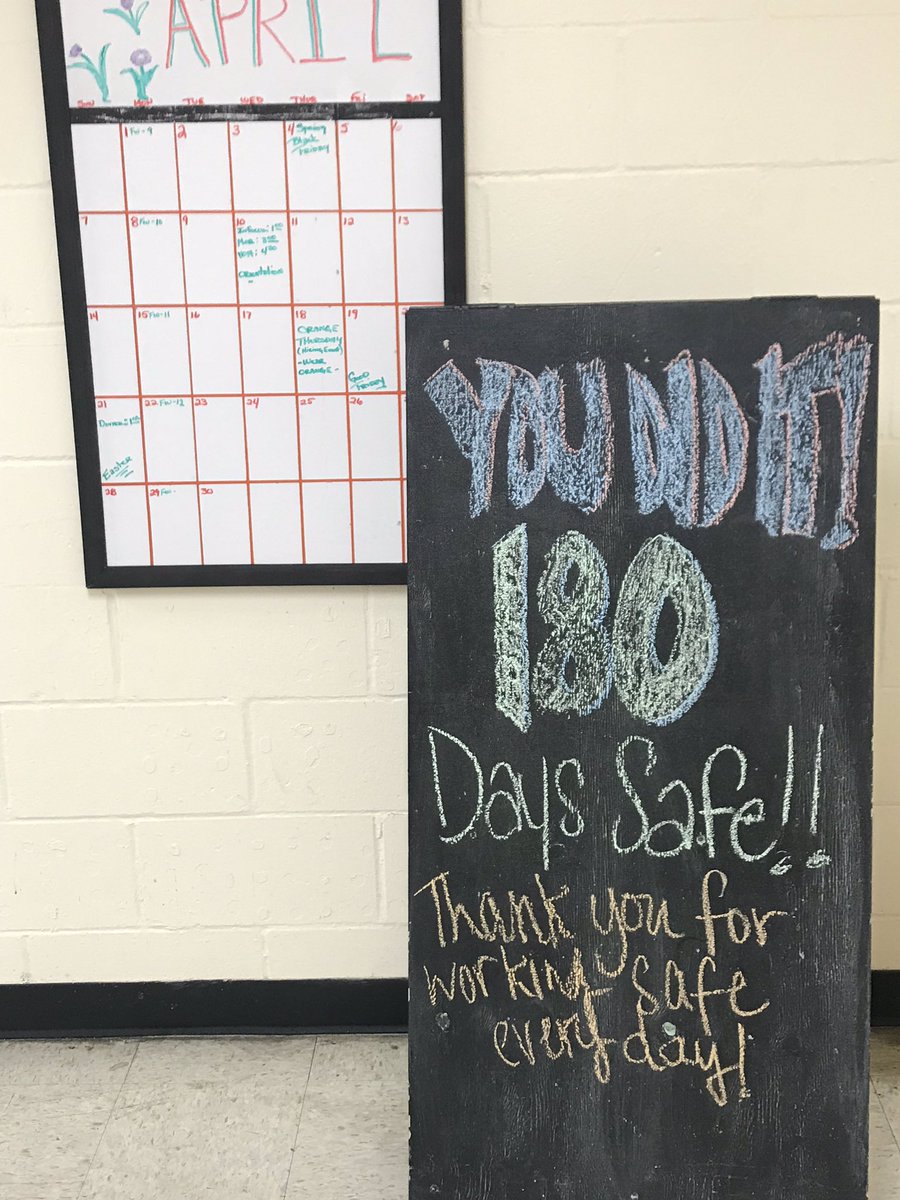 APRIL
SUN MON TUE WED THUR FRI SAT
1 FW-9 2 3 4 Spring 5 6
Black
FRIDAY
7 8 FW-10 9 10 11 12 13
InFocus: 1:00
VOA: 4:30
Orientation
14 15 FW-11 16 17 18 19
ORANGE
THURSDAY
(Hiring Event)
-WEAR
ORANGE-
GOOD
FRIDAY
21 22 FW-12 23 24 25 26
Easter
28 29 FW- 30
YOU DID IT!
180
Days Safe!!
Thank you for
working safe
every day!